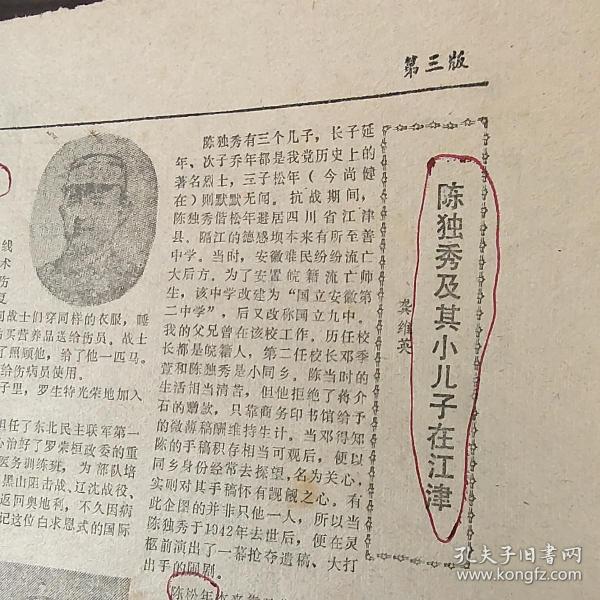 第三版
陈独秀及其小儿子在江津
龚维英
陈独秀有三个儿子，长子延
年、次子乔年都是我党历史上的
著名烈士，三子松年（今尚健
在）则默默无闻。抗战期间，
陈独秀偕松年避居四川省江津
县。隔江的德感坝本来有所至善
中学。当时，安徽难民纷纷流亡
大后方。为了安置皖籍流亡师
生，该中学改建为“国立安徽第
二中学”，后又改称国立九中。
我的父兄曾在该校工作。历任校
长都是皖籍人，第二任校长邓季
萱和陈独秀是小同乡。陈当时的
生活相当清苦，但他拒绝了蒋介
石的赠款，只靠商务印书馆给予
的微薄稿酬维持生计。当邓得知
陈的手稿积存相当可观后，便以
同乡身份经常去探望，名为关心，
实则对其手稿怀有觊觎之心。有
此企图的并非只他一人，所以当
陈独秀于1942年去世后，便在灵
柩前演出了一幕抢夺遗稿、大打
出手的闹剧。
陈松年
线
术
伤
复
同战士们穿同样的衣服，睡
买营养品送给伤员。战士
了照顾他，给了他一匹马。
给伤病员使用。
子里，罗生特光荣地加入
担任了东北民主联军第一
心治好了罗荣桓政委的重
医务训练班，为部队培
黑山阻击战、辽沈战役、
返回奥地利，不久因病
记这位白求恩式的国际
孔夫子旧书网
www.kongfz.com